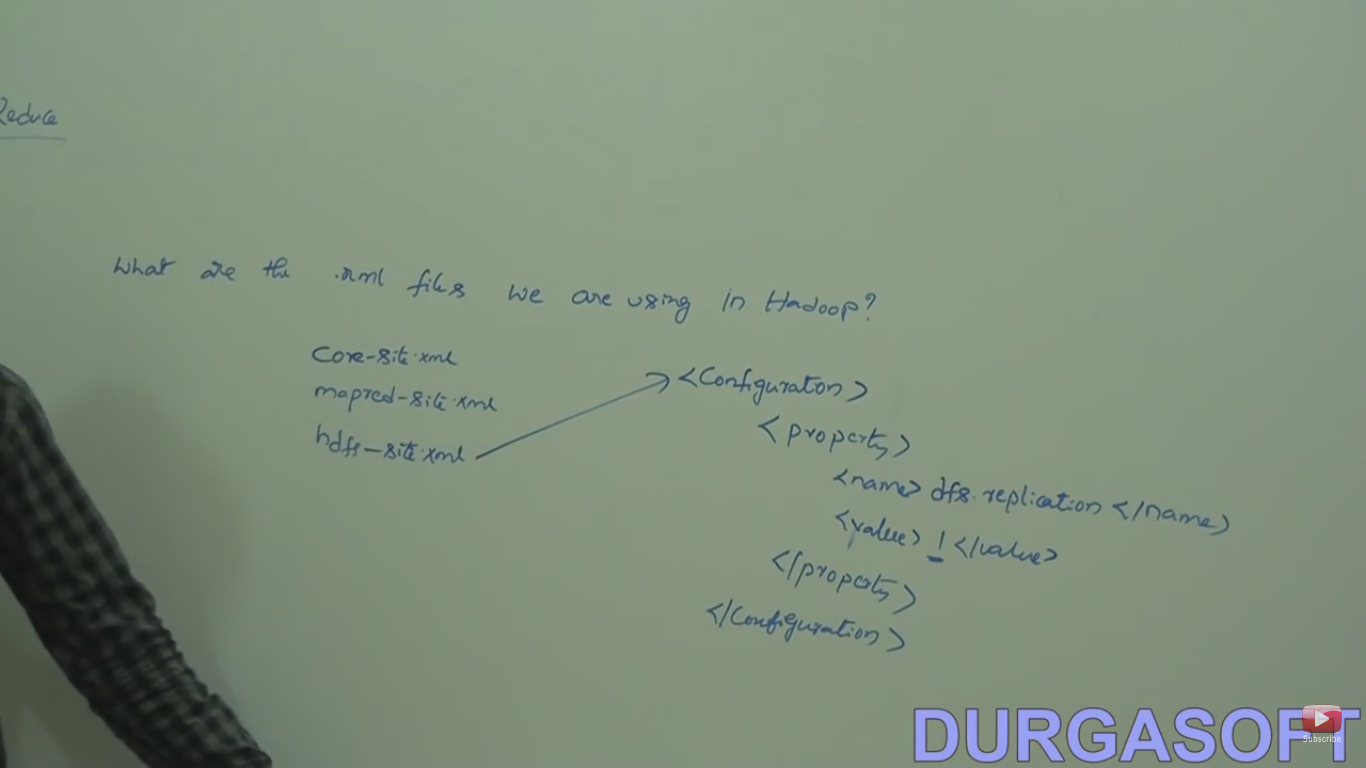 Reduce
What are the .xml files we are using in Hadoop?
Core-site.xml
mapred-site.xml
hdfs-site.xml
<Configuration>
<property>
<name> dfs.replication </name>
<value> 1 </value>
</property>
</Configuration>
DURGASOFT
Subscribe